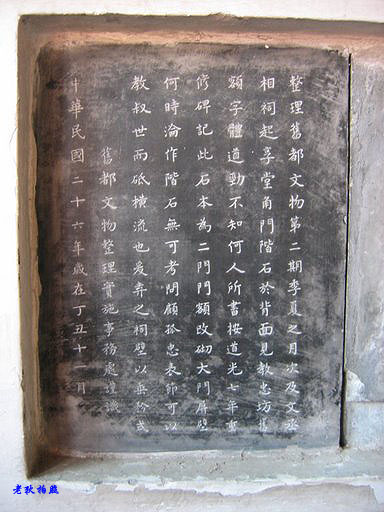 整理舊都文物第二期季夏之月次及文丞
相祠起享堂角門階石於背面見教忠坊舊
額字體遒勁不知何人所書按道光七年重
修碑記此石本為二門門額改砌大門屏壁
何時淪作階石無可考問顧孤忠表節可以
教叔世而砥橫流也爰弆之祠壁以垂於或
舊都文物整理實施事務處謹識
中華民國二十六年歲在丁丑十一月
老狄拍照